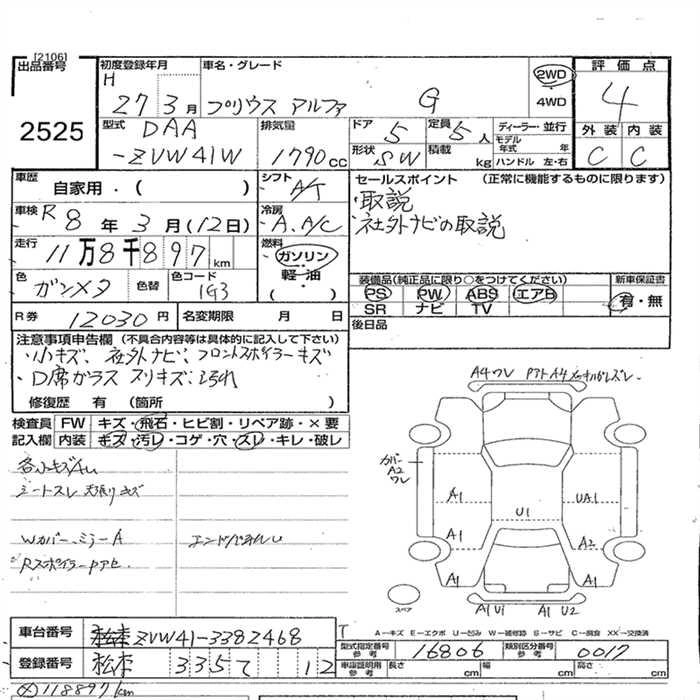 [2106]
出品番号
2525
初度登録年月
H 27 3月
車名・グレード
プリウス アルファ G
2WD
・4WD
評価点
4
外装 内装
C C
型式 DAA
-ZVW41W
排気量
1790cc
ドア 5
定員 5人
形状 SW
積載 kg
ディーラー・並行
モデル年式 年
ハンドル 左・右
車歴
自家用・( )
シフト
A/T
車検 R8年3月(12日)
冷房
A.A/C
走行
11万8千897km
燃料
ガソリン
軽・油
・( )
色
ガンメタ
色替
色コード
1G3
R券 12030円
名変期限 月 日
セールスポイント (正常に機能するものに限ります)
・取説
・社外ナビの取説
装備品(純正品に限り○をつけてください)
新車保証書
PS PW ABS エアB
SR ナビ TV
有・無
後日品
注意事項申告欄 (不具合内容等は具体的に記入して下さい)
・小キズ、社外ナビ、フロントスポイラーキズ
・D席ガラス スリキズ・汚れ
修復歴 有 (箇所 )
検査員
記入欄
FW キズ・飛石・ヒビ割・リペア跡・×要
内装 キズ・汚レ・コゲ・穴・スレ・キレ・破レ
各小キズAU
シートスレ 天張りキズ
Wカバー、ミラーA
エンドパネルU
RスポイラーPアセ
A4ワレ
カバー
A2
ワレ
A1
UA1
U1
A1
A2
A1
A1
A1 U1
A1 U2
スペア
A−キズ E−エクボ U−凹み W−補修跡 S−サビ C−腐食 XX−交換済
車台番号
ZVW41-3382468
登録番号
松本 335 て 12
型式指定番号
参考
16806
類別区分番号
参考
0017
車庫証明用
参考
長さ cm
幅 cm
高さ cm
118897km